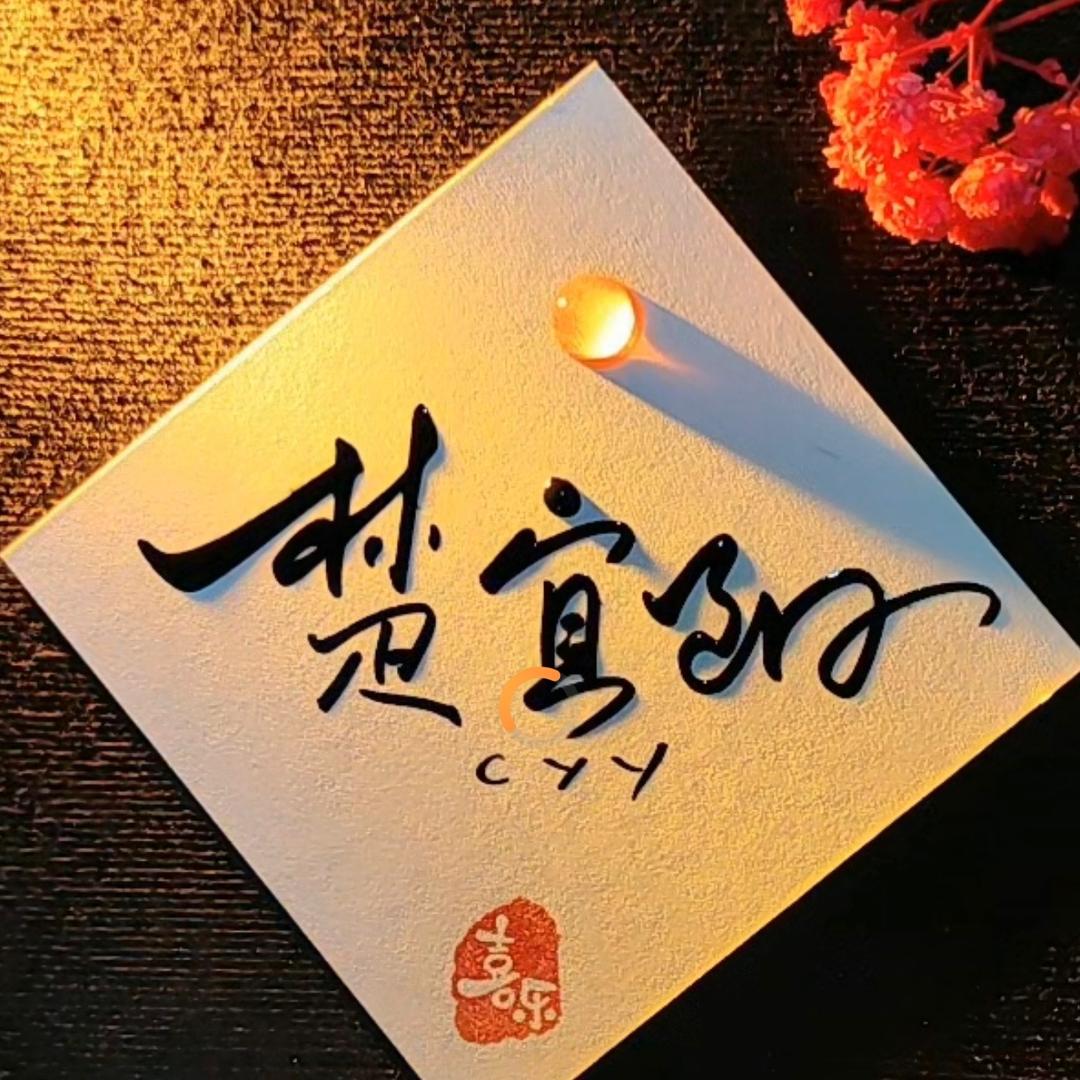 楚宜
CYY
喜乐